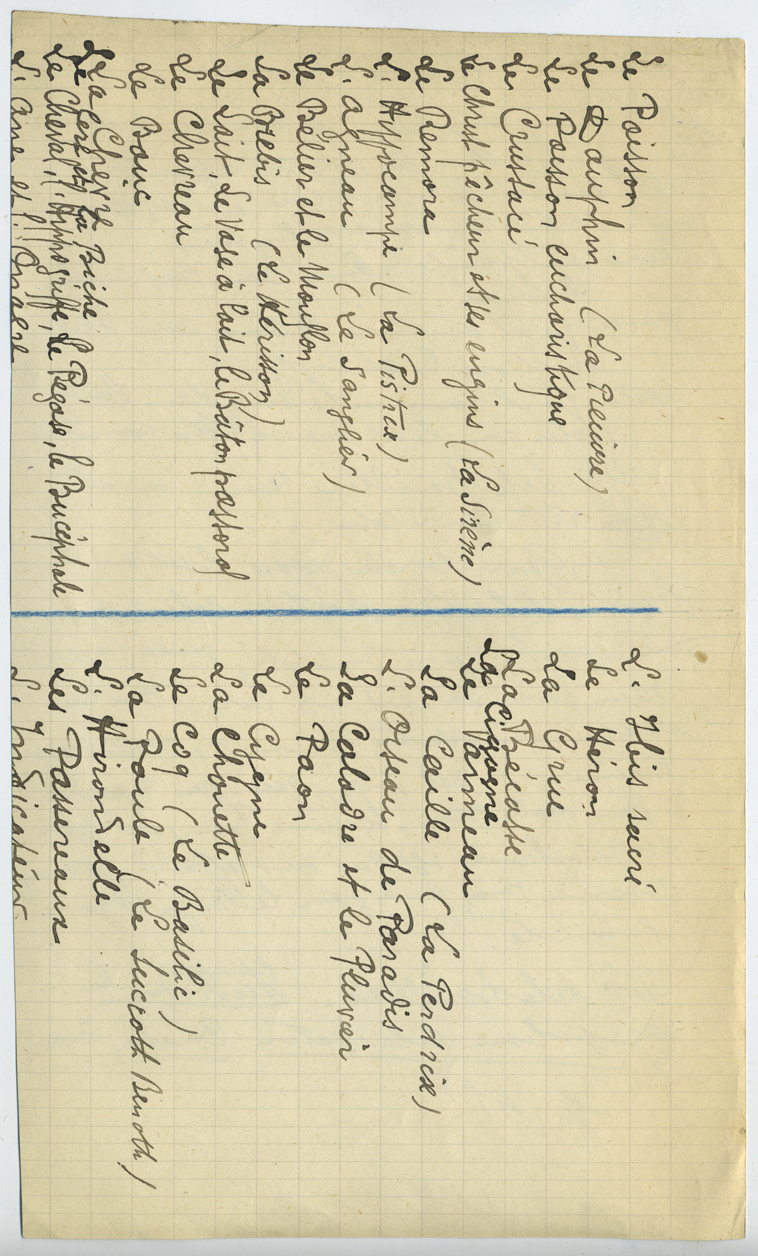 Le Poisson
Le Dauphin (La Pieuvre)
Le Poisson eucharistique
Le Crustacé
Le Christ pêcheur et ses engins (La Sirène)
Le Remora
L'Hyppocampe (La Pistrix)
L'agneau (Le Sanglier)
Le Bélier et le Mouflon
La Brebis (Le Hérisson)
Le Lait, le Vase à lait, le Bâton pastoral
Le Chevreau
Le Bouc
La Chèvre
Le Cerf et la Biche
Le Cheval, l'Hippogriffe, le Pégase, le Bucéphale
L'Ane et l'Onagre
L'Ibis sacré
Le Héron
La Grue
La Bécasse
La Cigogne
Le Vanneau
La Caille (La Perdrix)
L'Oiseau de Paradis
La Caladre et le Pluvier
Le Paon
Le Cygne
La Chouette
Le Coq (Le Basilic)
La Poule (Le Succoth Benoth)
L'Hirondelle
Les Passereaux
L'Indicateur